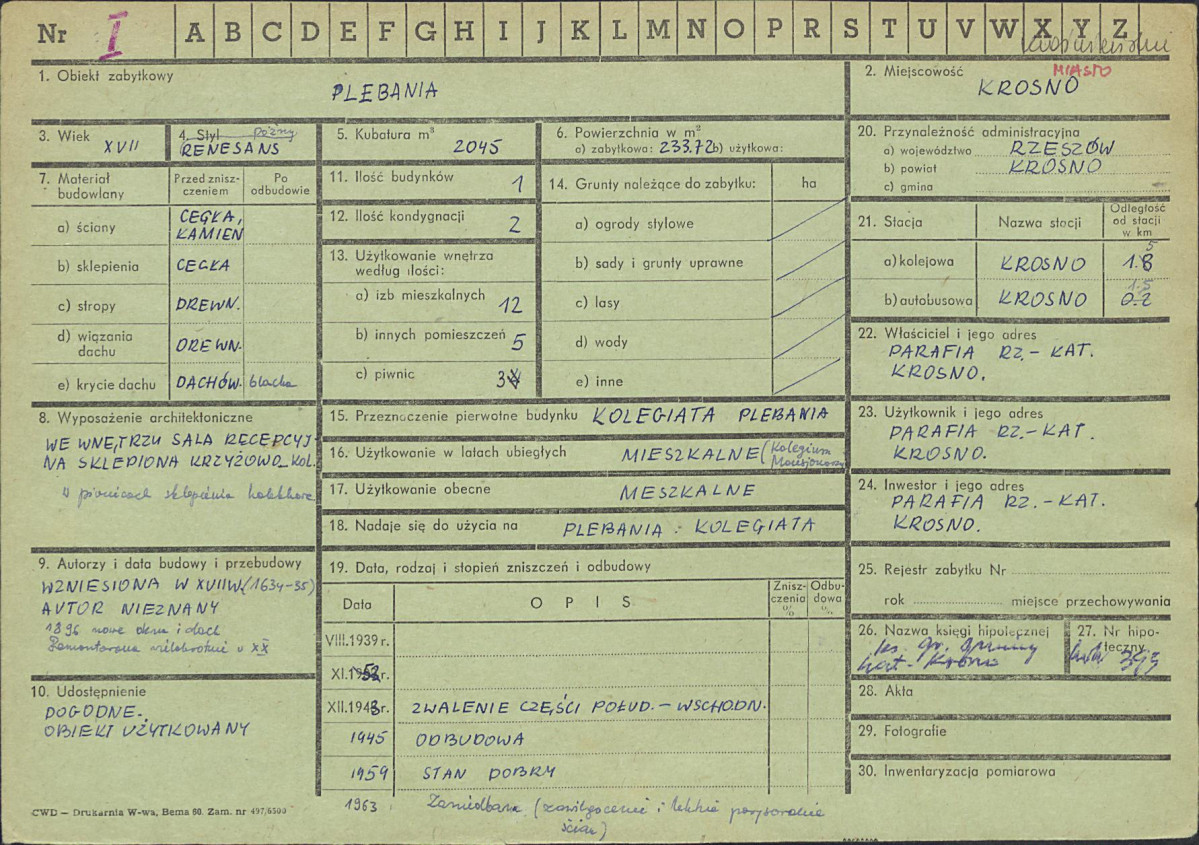 Nr I A B C D E F G H I J K L M N O P R S T U V W X Y Z
1. Obiekt zabytkowy
PLEBANIA
2. Miejscowość
MIASTO
KROSNO
3. Wiek
XVII
4. Styl późny
RENESANS
5. Kubatura m³
2045
6. Powierzchnia w m²
a) zabytkowa: 233.72 b) użytkowa:
7. Materiał budowlany
Przed zniszczeniem
Po odbudowie
a) ściany CEGŁA, KAMIEŃ
b) sklepienia CEGŁA
c) stropy DREWN.
d) wiązania dachu DREWN.
e) krycie dachu DACHÓW. blacha
11. Ilość budynków 1
12. Ilość kondygnacji 2
13. Użytkowanie wnętrza według ilości:
a) izb mieszkalnych 12
b) innych pomieszczeń 5
c) piwnic 3
14. Grunty należące do zabytku: ha
a) ogrody stylowe
b) sady i grunty uprawne
c) lasy
d) wody
e) inne
20. Przynależność administracyjna
a) województwo RZESZÓW
b) powiat KROSNO
c) gmina —
21. Stacja Nazwa stacji Odległość od stacji w km
a) kolejowa KROSNO 1.8 5
b) autobusowa KROSNO 0.2 1.5
22. Właściciel i jego adres
PARAFIA RZ.-KAT.
KROSNO.
8. Wyposażenie architektoniczne
WE WNĘTRZU SALA RECEPCYJ-
NA SKLEPIONA KRZYŻOWO_KOL.
w piwnicach sklepienia kolebkowe
15. Przeznaczenie pierwotne budynku KOLEGIATA PLEBANIA
16. Użytkowanie w latach ubiegłych MIESZKALNE (Kolegium Mansjonarzy)
17. Użytkowanie obecne MESZKALNE
18. Nadaje się do użycia na PLEBANIA - KOLEGIATA
23. Użytkownik i jego adres
PARAFIA RZ.-KAT.
KROSNO.
24. Inwestor i jego adres
PARAFIA RZ.-KAT.
KROSNO.
9. Autorzy i data budowy i przebudowy
WZNIESIONA W XVII W. (1634-35)
AUTOR NIEZNANY
1896 nowe okna i dach
Remontowana wielokrotnie w XX
10. Udostępnienie
DOGODNE.
OBIEKT UŻYTKOWANY
19. Data, rodzaj i stopień zniszczeń i odbudowy
Data OPIS Zniszczenia % Odbudowa %
VIII.1939 r.
XI.1952 r.
XII.1943 r. ZWALENIE CZĘŚCI POŁUD.-WSCHODN.
1945 ODBUDOWA
1959 STAN DOBRY
1963 Zaniedbana (zawilgocenie i lekkie porysowanie ścian)
25. Rejestr zabytku Nr
rok miejsce przechowywania
26. Nazwa księgi hipotecznej
ks. gr. gminy
kat. Krosno
27. Nr hipoteczny
lwh 393
28. Akta
29. Fotografie
30. Inwentaryzacja pomiarowa
CWD — Drukarnia W-wa, Bema 60. Zam. nr 497/6500